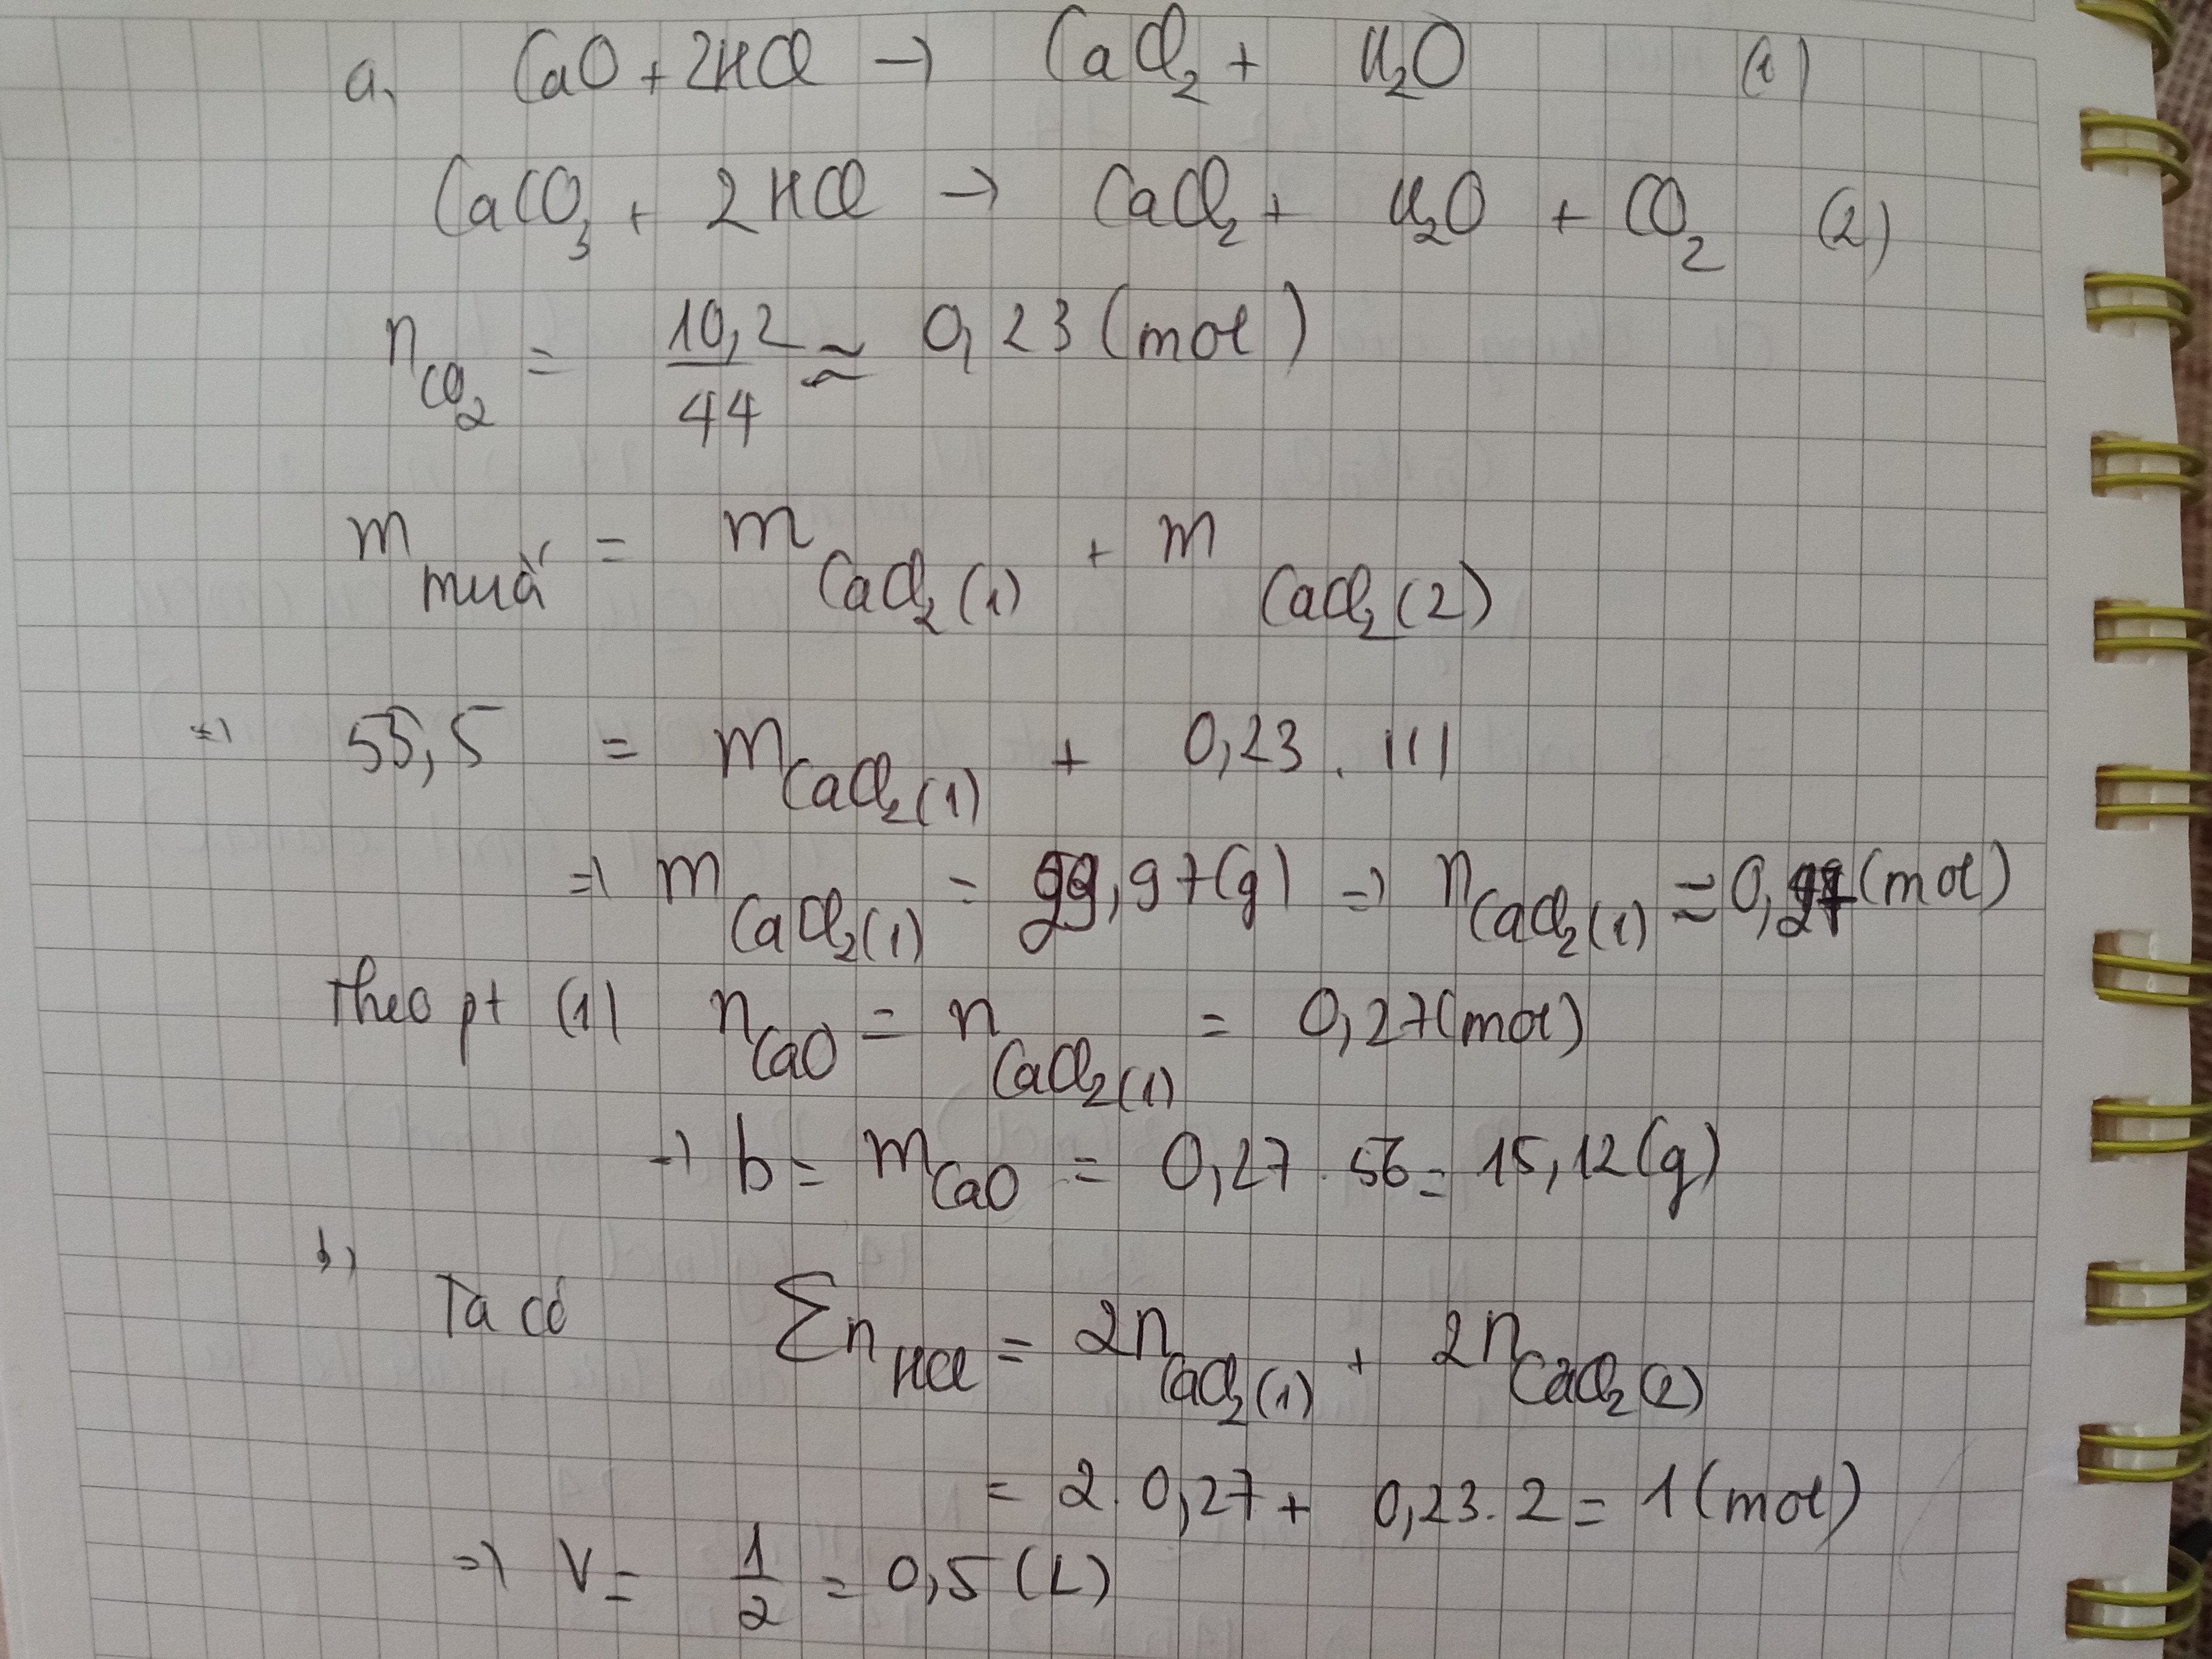 a, CaO + 2HCl → CaCl₂ + H₂O (1)
CaCO₃ + 2HCl → CaCl₂ + H₂O + CO₂ (2)
n CO₂ = 10,2/44 ≈ 0,23 (mol)
m muối = m CaCl₂(1) + m CaCl₂(2)
⇒ 55,5 = m CaCl₂(1) + 0,23 . 111
⇒ m CaCl₂(1) = 29,97 (g) ⇒ n CaCl₂(1) ≈ 0,27 (mol)
Theo pt (1) n CaO = n CaCl₂(1) = 0,27 (mol)
⇒ b = m CaO = 0,27 . 56 = 15,12 (g)
b, Ta có Σn HCl = 2n CaCl₂(1) + 2n CaCl₂(2)
= 2. 0,27 + 0,23. 2 = 1 (mol)
⇒ V = 1/2 = 0,5 (L)